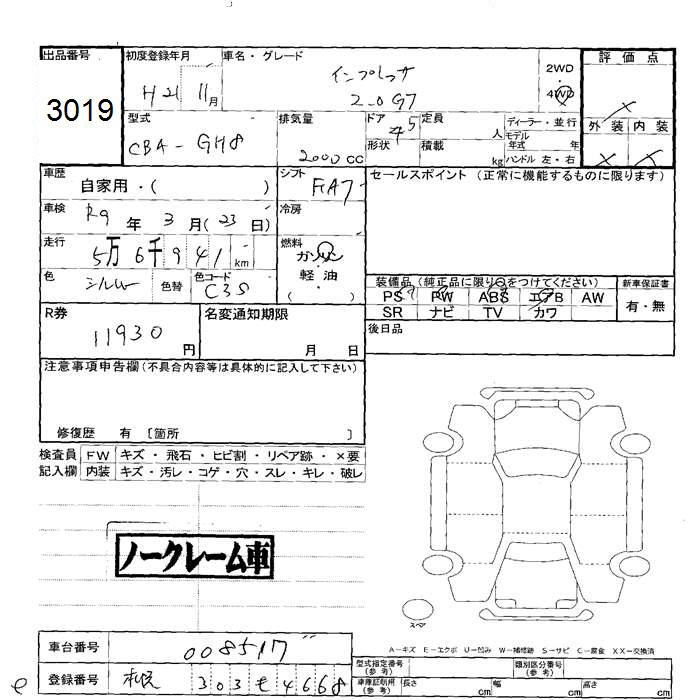 出品番号
3019
初度登録年月
H21 11月
車名・グレード
インプレッサ
2.0G7
2WD
・
4WD
評価点
外装 内装
型式
CBA-GH8
排気量
2000 CC
ドア
5
形状
定員
人
積載
kg
ディーラー・並行
モデル年式 年
ハンドル 左・右
車歴
自家用・( )
シフト
FA7
セールスポイント (正常に機能するものに限ります)
車検
R9年 3月(23日)
冷房
走行
5万6千941km
燃料
ガソリン
軽油
( )
色
シルバー
色替
色コード
C3S
装備品(純正品に限り○をつけてください)
PS PW ABS エアB AW
SR ナビ TV カワ
新車保証書
有・無
R券
11930円
名変通知期限
月 日
後日品
注意事項申告欄(不具合内容等は具体的に記入して下さい)
修復歴 有 [箇所 ]
検査員記入欄
FW キズ・飛石・ヒビ割・リペア跡・×要
内装 キズ・汚レ・コゲ・穴・スレ・キレ・破レ
ノークレーム車
スペア
A-キズ E-エクボ U-凹み W-補修跡 S-サビ C-腐食 XX-交換済
車台番号
008517
登録番号
札幌 303 も 4668
型式指定番号(参考)
類別区分番号(参考)
車庫証明用(参考)
長さ cm 幅 cm 高さ cm